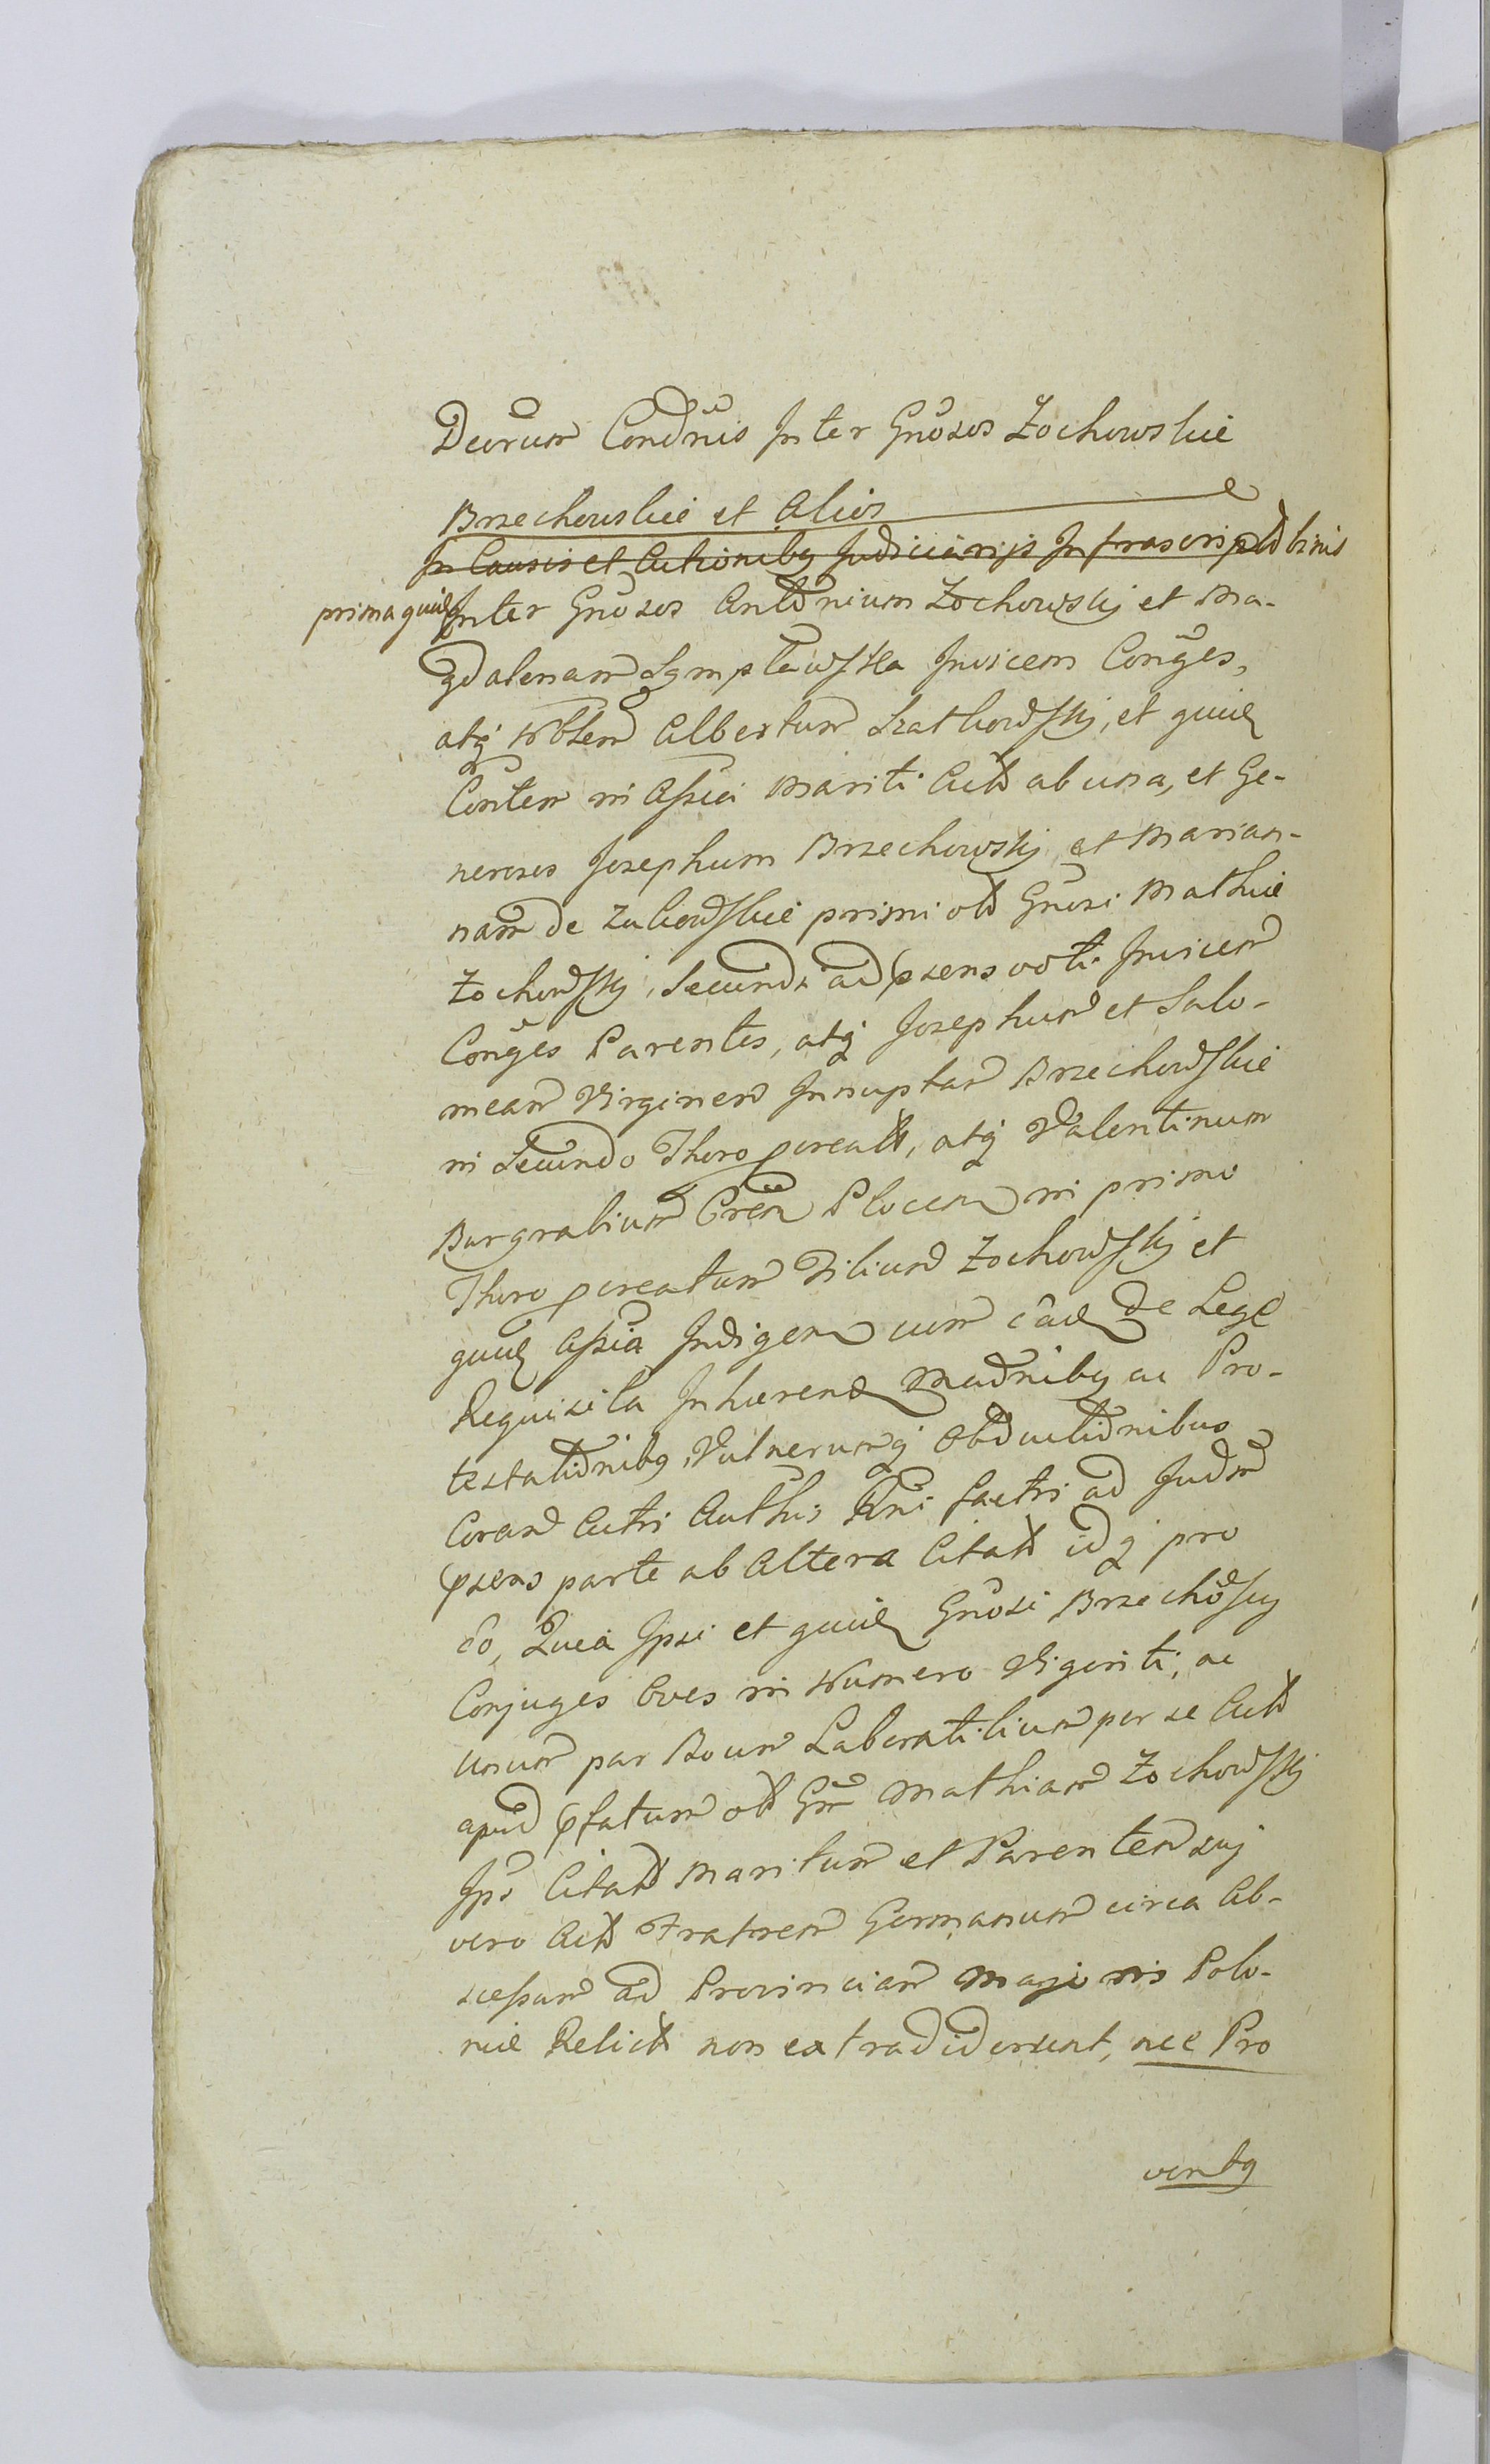 Decrum Condnis Inter Gnosos Zochowskie
Brzechowskie et Alios
In Causis et Actionibq Judiciarijs Infrascriptis binis
prima quidem Inter Gnosos Antonium Zochowskj et Ma-
gdalenam Symplawska Invicem Conges,
atq Nobilem Albertum Szatkowskj, et quidem
Conten in Assia Mariti Act ab una, et Ge-
nerosos Josephum Brzechowskj et Marian-
nam de Zukowskie primi olt Gnosi Mathie
Zochowskj, Secundi ad psens voti Invicem
Conges Parentes, atq Josephum et Salo-
meam Virginem Innuptam Brzechowskie
in Secundo Thoro pcreatt, atq Valentinum
Burgrabium Cren Plocen in primo
Thoro pcreatum Filium Zochowskj et
quidem Assia Indigen cum eade de Lege
Requisita Inhaerend Madnibq ac Pro-
testationibq, Vulnerumq Obductionibus
Coram Actri Authis Rni factri ad Judm
psens parte ab Altera Citatt idq pro
eo, Quia Ipsi et quidem Gnosi Brzechosky
Conjuges Oves in Numero Viginti, ac
unum par Boum Laboratilium per se Act
apud pfatum olt Gm Mathiam Zochowskj
Ips Citatt Maritum et Parentem suj
vero Act Fratrem Germanum circa Ab-
scessum ad Provinciam Majoris Polo-
nie Relict non extradiderunt, nec Pro
ventq